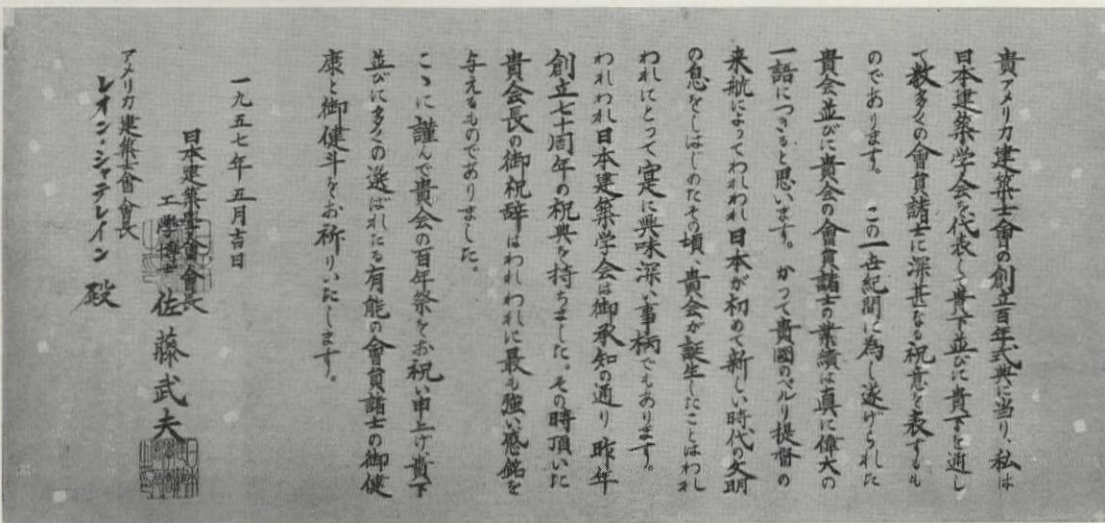 貴アメリカ建築士會の創立百年式典に当り、私は
日本建築学会を代表して貴下並びに貴下を通し
て数多くの會員諸士に深甚なる祝意を表するも
のであります。この一世紀間に為し遂げられた
貴会並びに貴会の會員諸士の業績は真に偉大の
一語につきると思います。かつて貴國のペルリ提督の
来航によってわれわれ日本が初めて新しい時代の文明
の息をしはじめたその頃、貴会が誕生したことはわれ
われにとって寔に興味深い事柄でもあります。
われわれ日本建築学会は御承知の通り昨年
創立七十周年の祝典を持ちました。その時頂いた
貴会長の御祝辞はわれわれに最も強い感銘を
与えるものでありました。
こゝに謹んで貴会の百年祭をお祝い申上げ、貴下
並びに多くの選ばれたる有能の會員諸士の御健
康と御健斗をお祈りいたします。
一九五七年五月吉日
日本建築學會會長
工學博士 佐藤武夫
アメリカ建築士會會長
レオン・シャテレイン殿